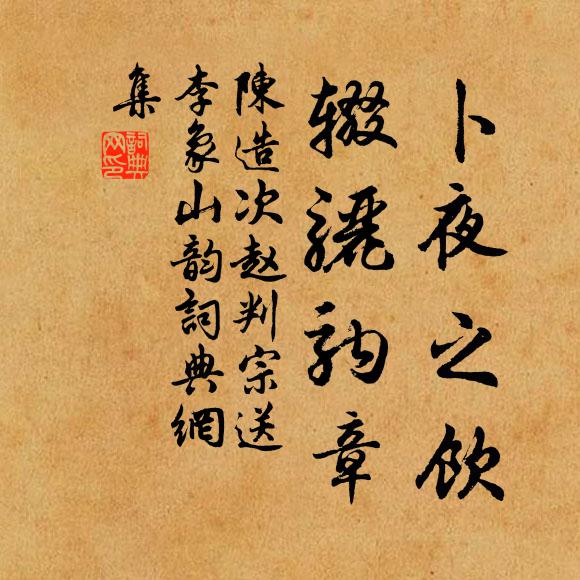 卜夜之飲
辍驪駒章
陳造次赵判宗送
李象山韵詞典網
集
詞典
网印